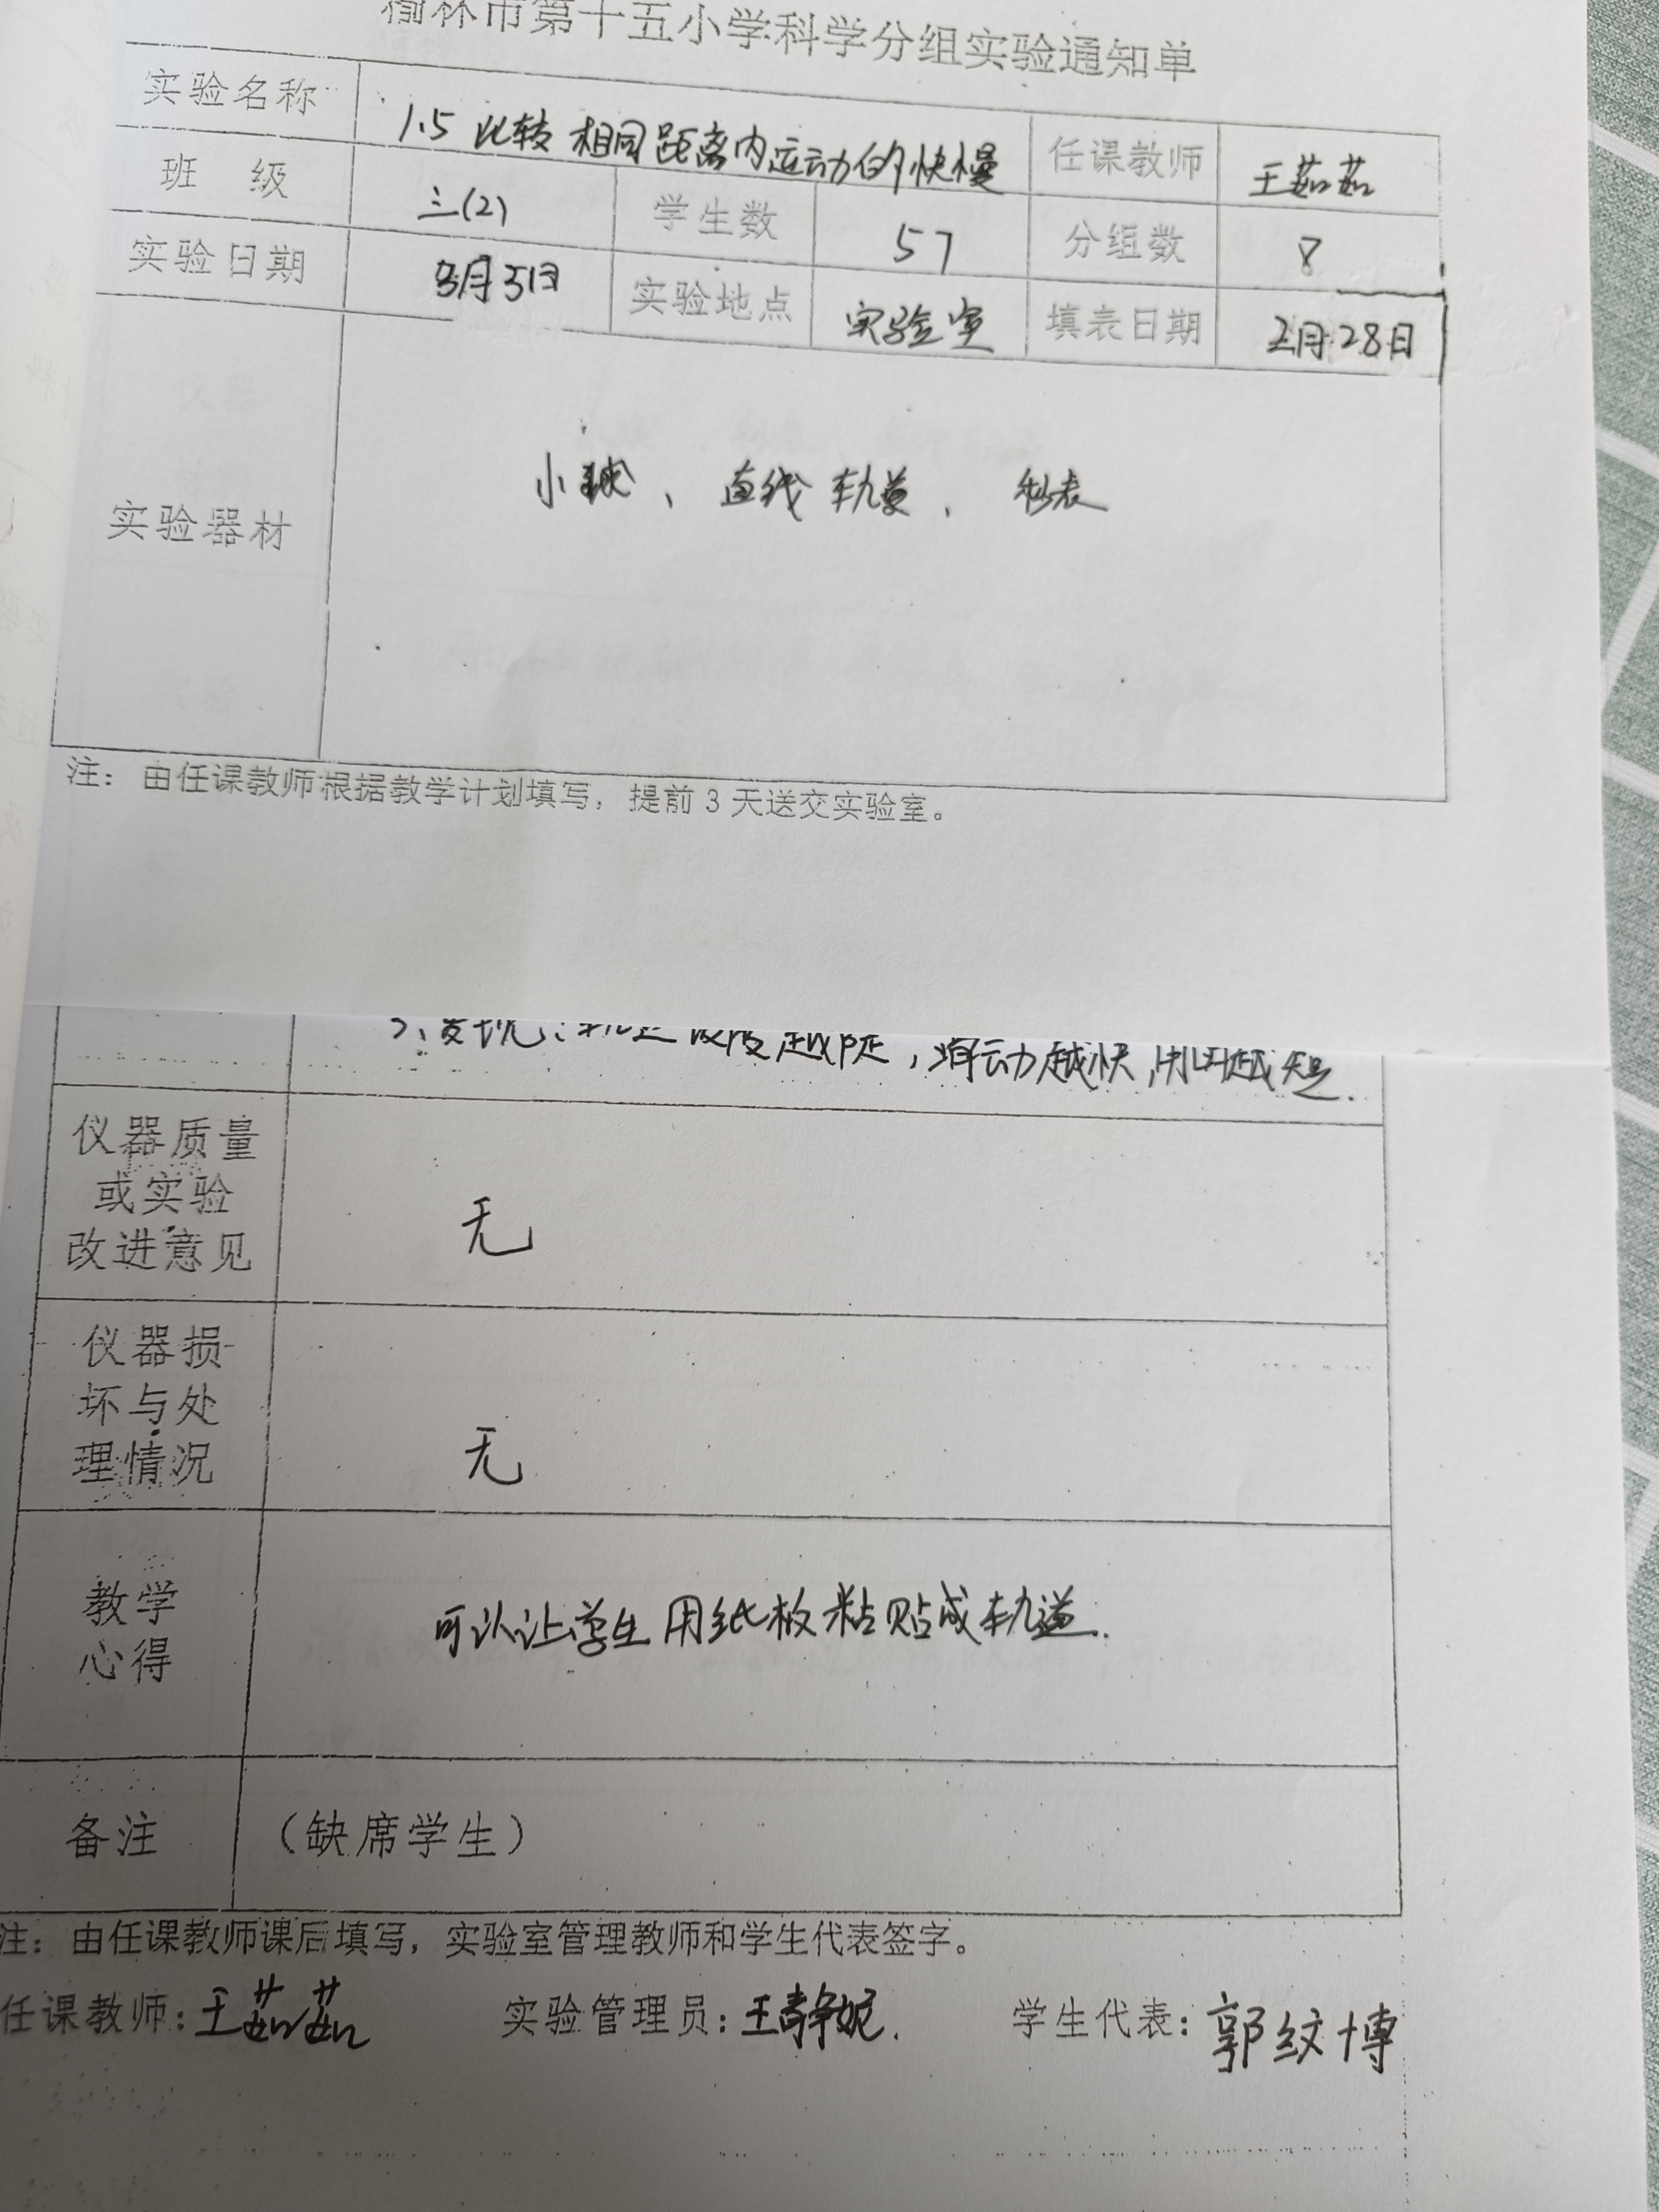 榆林市第十五小学科学分组实验通知单
实验名称 1.5 比较相同距离内运动的快慢 任课教师 王茹茹
班 级 三(2) 学生数 57 分组数 8
实验日期 3月31日 实验地点 实验室 填表日期 2月28日
实验器材 小球、直线轨道、秒表
注：由任课教师根据教学计划填写，提前3天送交实验室。
发现：轨道坡度越陡，滑动越快，用时越短.
仪器质量
或实验
改进意见
无
仪器损
坏与处
理情况
无
教学
心得
可以让学生用纸板粘贴成轨道.
备注 （缺席学生）
注：由任课教师课后填写，实验室管理教师和学生代表签字。
任课教师：王茹茹 实验管理员：王静妮. 学生代表：郭纹博